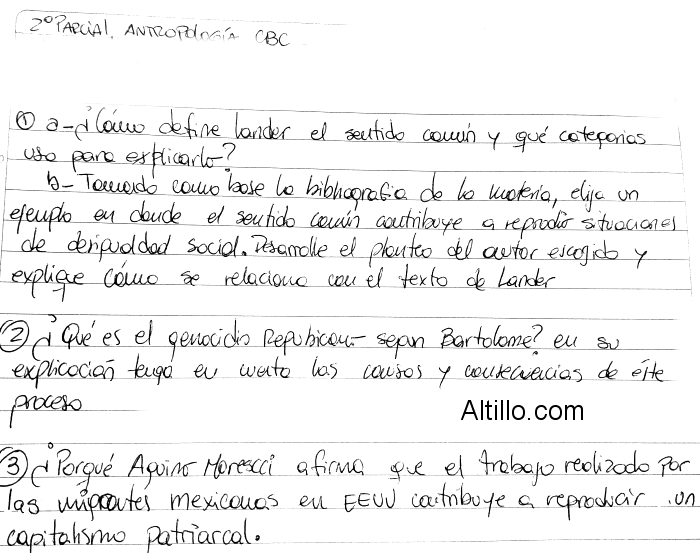 2º PARCIAL. ANTROPOLOGÍA CBC
① a-¿Cómo define Lander el sentido común y qué categorías
usa para explicarlo?
b- Tomando como base la bibliografía de la materia, elija un
ejemplo en donde el sentido común contribuye a reproducir situaciones
de desigualdad social. Desarrolle el planteo del autor escogido y
explique cómo se relaciona con el texto de Lander
② ¿Qué es el genocidio Republicano según Bartolomé? en su
explicación tenga en cuenta las causas y consecuencias de éste
proceso
Altillo.com
③ ¿Porqué Aquino Moreschi afirma que el trabajo realizado por
las migrantes mexicanas en EEUU contribuye a reproducir un
capitalismo patriarcal.